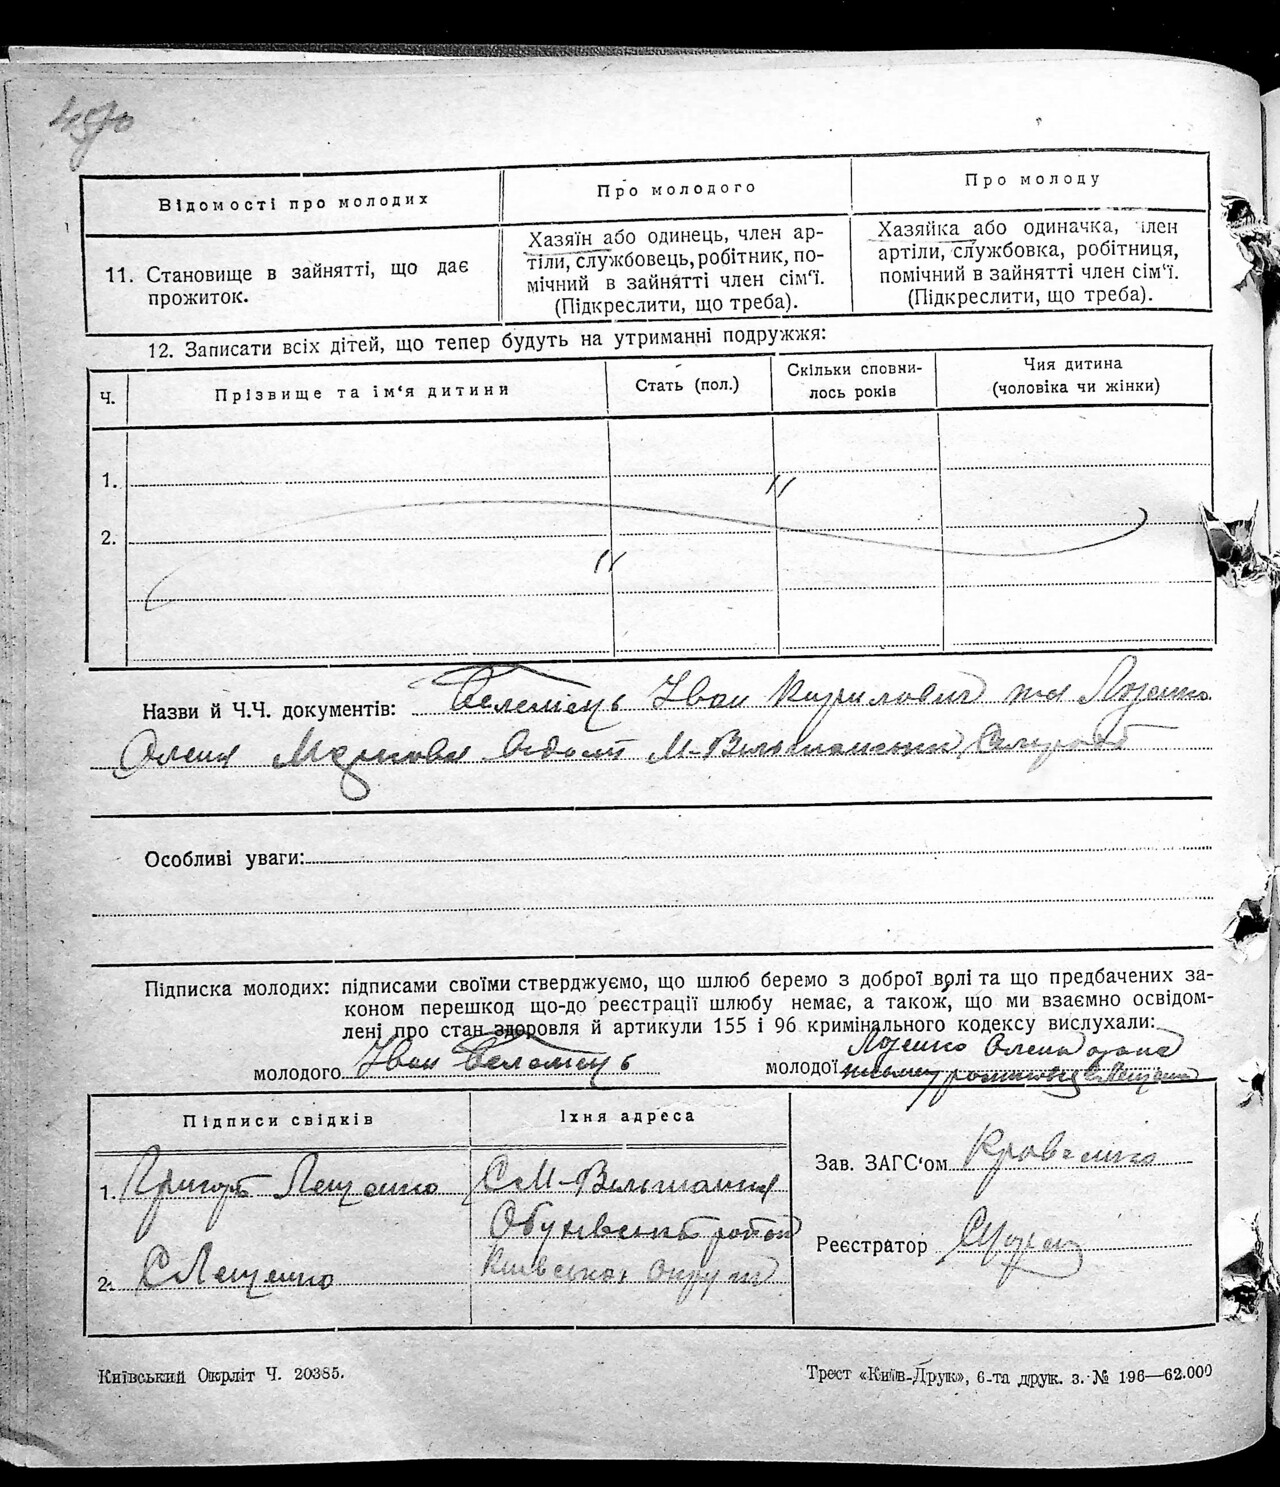 Відомості про молодих
Про молодого
Про молоду
11. Становище в зайнятті, що дає
прожиток.
Хазяїн або одинець, член ар-
тіли, службовець, робітник, по-
мічний в зайнятті член сім'ї.
(Підкреслити, що треба).
Хазяйка або одиначка, член
артіли, службовка, робітниця,
помічний в зайнятті член сім'ї.
(Підкреслити, що треба).
12. Записати всіх дітей, що тепер будуть на утриманні подружжя:
Ч.
Прізвище та ім'я дитини
Стать (пол.)
Скільки сповни-
лось років
Чия дитина
(чоловіка чи жінки)
1.
2.
Назви й Ч.Ч. документів: Іван Кирилович та
Олена М-Вільшанської
Особливі уваги:
Підписка молодих: підписами своїми стверджуємо, що шлюб беремо з доброї волі та що предбачених за-
коном перешкод що-до реєстрації шлюбу немає, а також, що ми взаємно освідом-
лені про стан здоровля й артикули 155 і 96 кримінального кодексу вислухали:
молодого Іван
молодої Олена
Підписи свідків
Їхня адреса
1. Лещенко
С М-Вільшанка
Обухівськ район
2. С Лещенко
Київської Округи
Зав. ЗАГС'ом
Реєстратор
Київський Окрліт Ч. 20385.
Трест «Київ-Друк», 6-та друк. з. № 196—62.000